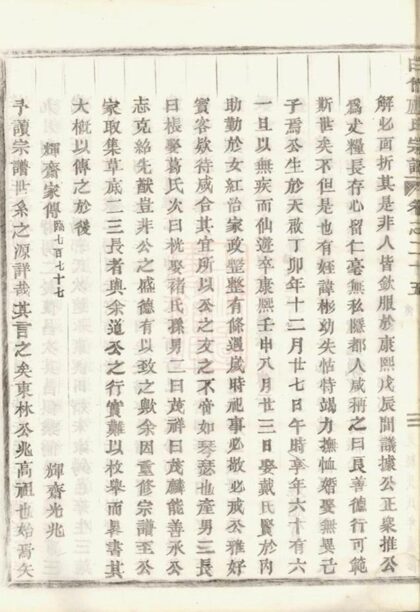 解必面折其是非人皆欽服於康熙戊辰間議據公正衆推公
爲史糧長存心留仁毫無私隱都人咸稱之曰良善德行可範
斯世矣不但是也有姪諱彬幼失怙特竭力撫恤婚娶無異己
子焉公生於天啟丁卯年十二月廿七日午時享年六十有六
一旦以無疾而仙遊卒康熙壬申八月廿三日娶戴氏賢於內
助勤於女紅治家政整整有條遇歲時祀事必敬必戒公雅好
賓客欵待咸合其宜所以公之交之不啻如琴瑟也產男二長
曰棖娶葛氏次曰桄娶褚氏孫男二曰茂祥曰茂麟能善承公
志克紹先猷豈非公之盛德有以致之歟余因重修宗譜至公
家取集草底二三長者與余道公之行實難以枚舉而畧書其
大概以傳之於後
輝齋家傳 臨七百七十七
輝齋光兆
予讀宗譜世系之源詳哉其言之矣東林公兆高祖也始膺矢